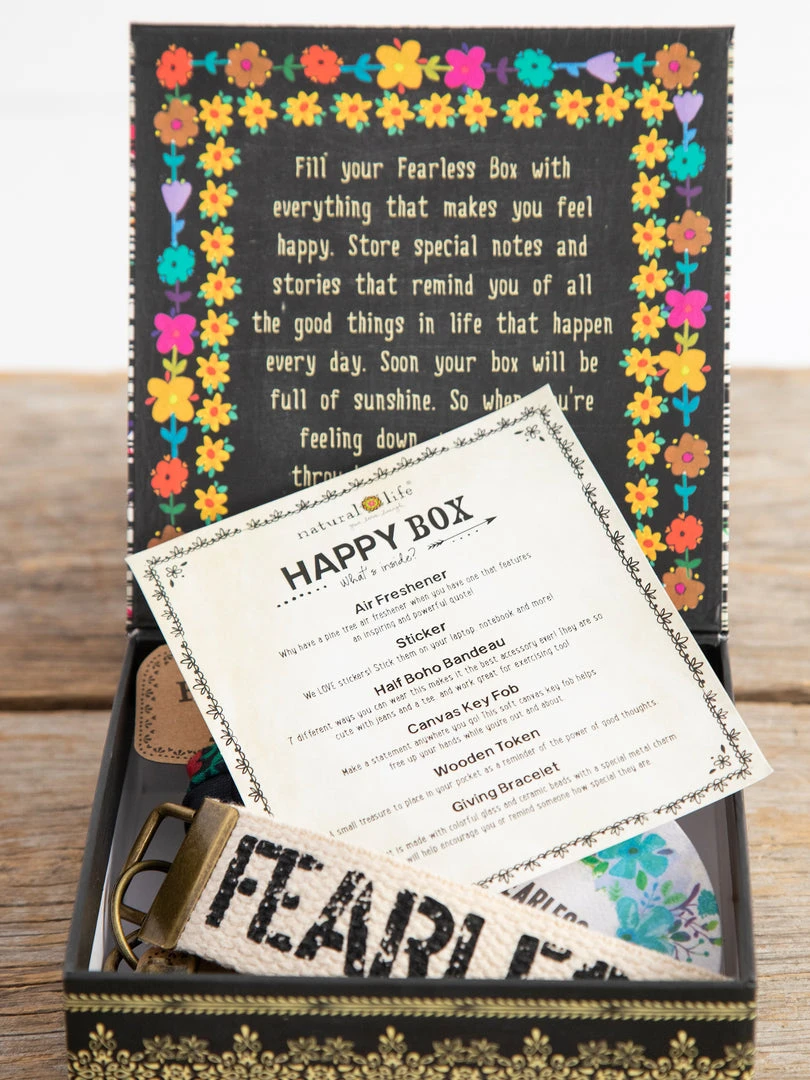 Fill your Fearless Box with
everything that makes you feel
happy. Store special notes and
stories that remind you of all
the good things in life that happen
every day. Soon your box will be
full of sunshine. So when you're
feeling down
natural life®
HAPPY BOX
What's inside?
Air Freshener
Why have a pine tree air freshener when you have one that features
an inspiring and powerful quote!
Sticker
We LOVE stickers! Stick them on your laptop, notebook and more!
Half Boho Bandeau
7 different ways you can wear this makes it the best accessory ever! They are so
cute with jeans and a tee, and work great for exercising too!
Canvas Key Fob
Make a statement anywhere you go! This soft canvas key fob helps
free up your hands while you're out and about
Wooden Token
A small treasure to place in your pocket as a reminder of the power of good thoughts.
Giving Bracelet
is made with colorful glass and ceramic beads with a special metal charm
will help encourage you or remind someone how special they are
FEARLESS
FEARLE